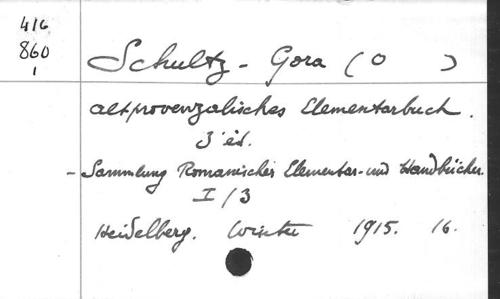 416
860
1
Schultz - Gora (O )
altprovenzalisches Elementarbuch.
3 éd.
- Sammlung Romanischer Elementar- und Handbücher.
I/3
Heidelberg. Winter 1915. 16.